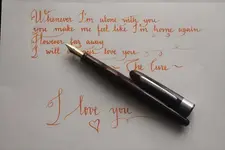 Whenever I'm alone with you
you make me feel like I'm home again
However far away
I will you love you
~ The Cure ~
I love you